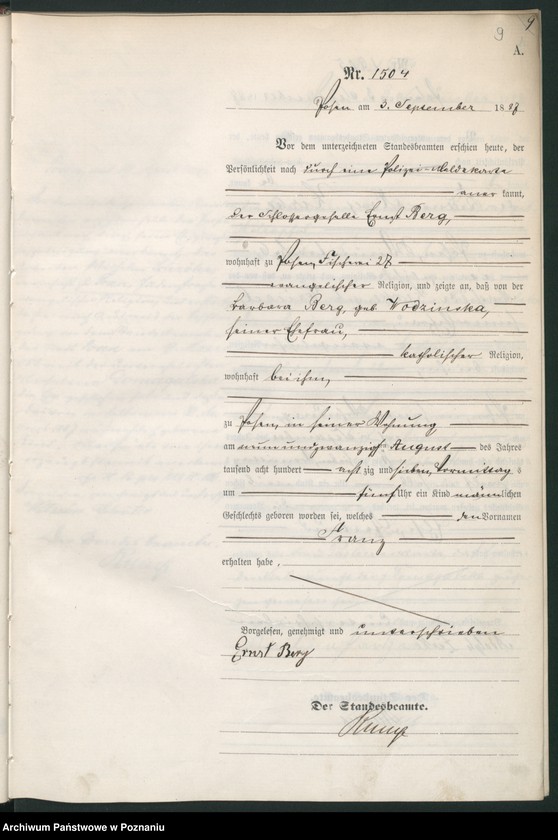 9
9
A.
Nr. 1504
Posen am 3. September 1887
Vor dem unterzeichneten Standesbeamten erschien heute, der
Persönlichkeit nach durch eine Polizei-Meldekarte
aner kannt,
der Schlossergeselle Ernst Berg,
wohnhaft zu Posen, Fischerei 27
evangelischer Religion, und zeigte an, daß von der
Barbara Berg, geb. Wodzinska,
seiner Ehefrau,
katholischer Religion,
wohnhaft bei ihm,
zu Posen, in seiner Wohnung
am neunundzwanzigsten August des Jahres
tausend acht hundert achtzig und sieben, Vormittag s
um fünf Uhr ein Kind männlichen
Geschlechts geboren worden sei, welches den Vornamen
Franz
erhalten habe,
Vorgelesen, genehmigt und unterschrieben
Ernst Berg
Der Standesbeamte.
Archiwum Państwowe w Poznaniu